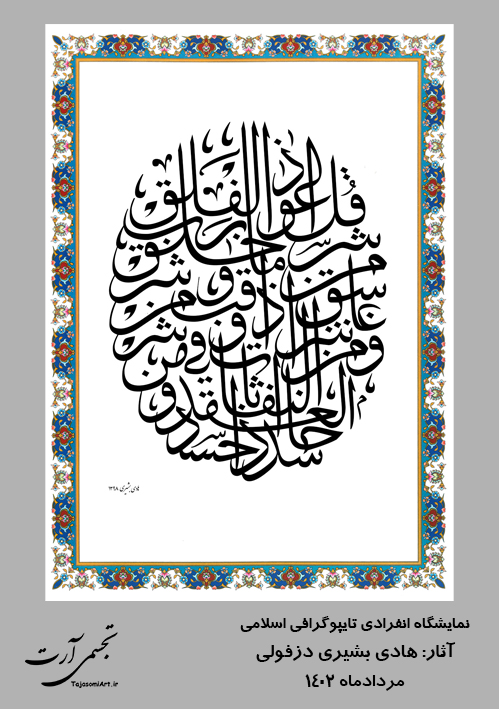 قل اعوذ برب الفلق
من شر ما خلق
و من شر غاسق اذا وقب
و من شر النفاثات فی العقد
و من شر حاسد اذا حسد
هادی بشیری ۱۳۹۸
نمایشگاه انفرادی تایپوگرافی اسلامی
آثار: هادی بشیری دزفولی
مردادماه ۱۴۰۲
تجسمی آرت
TajasomiArt.ir